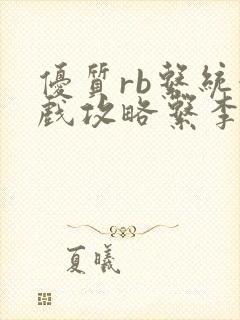 優質rb繫統
戲攻略繫李
夏曦